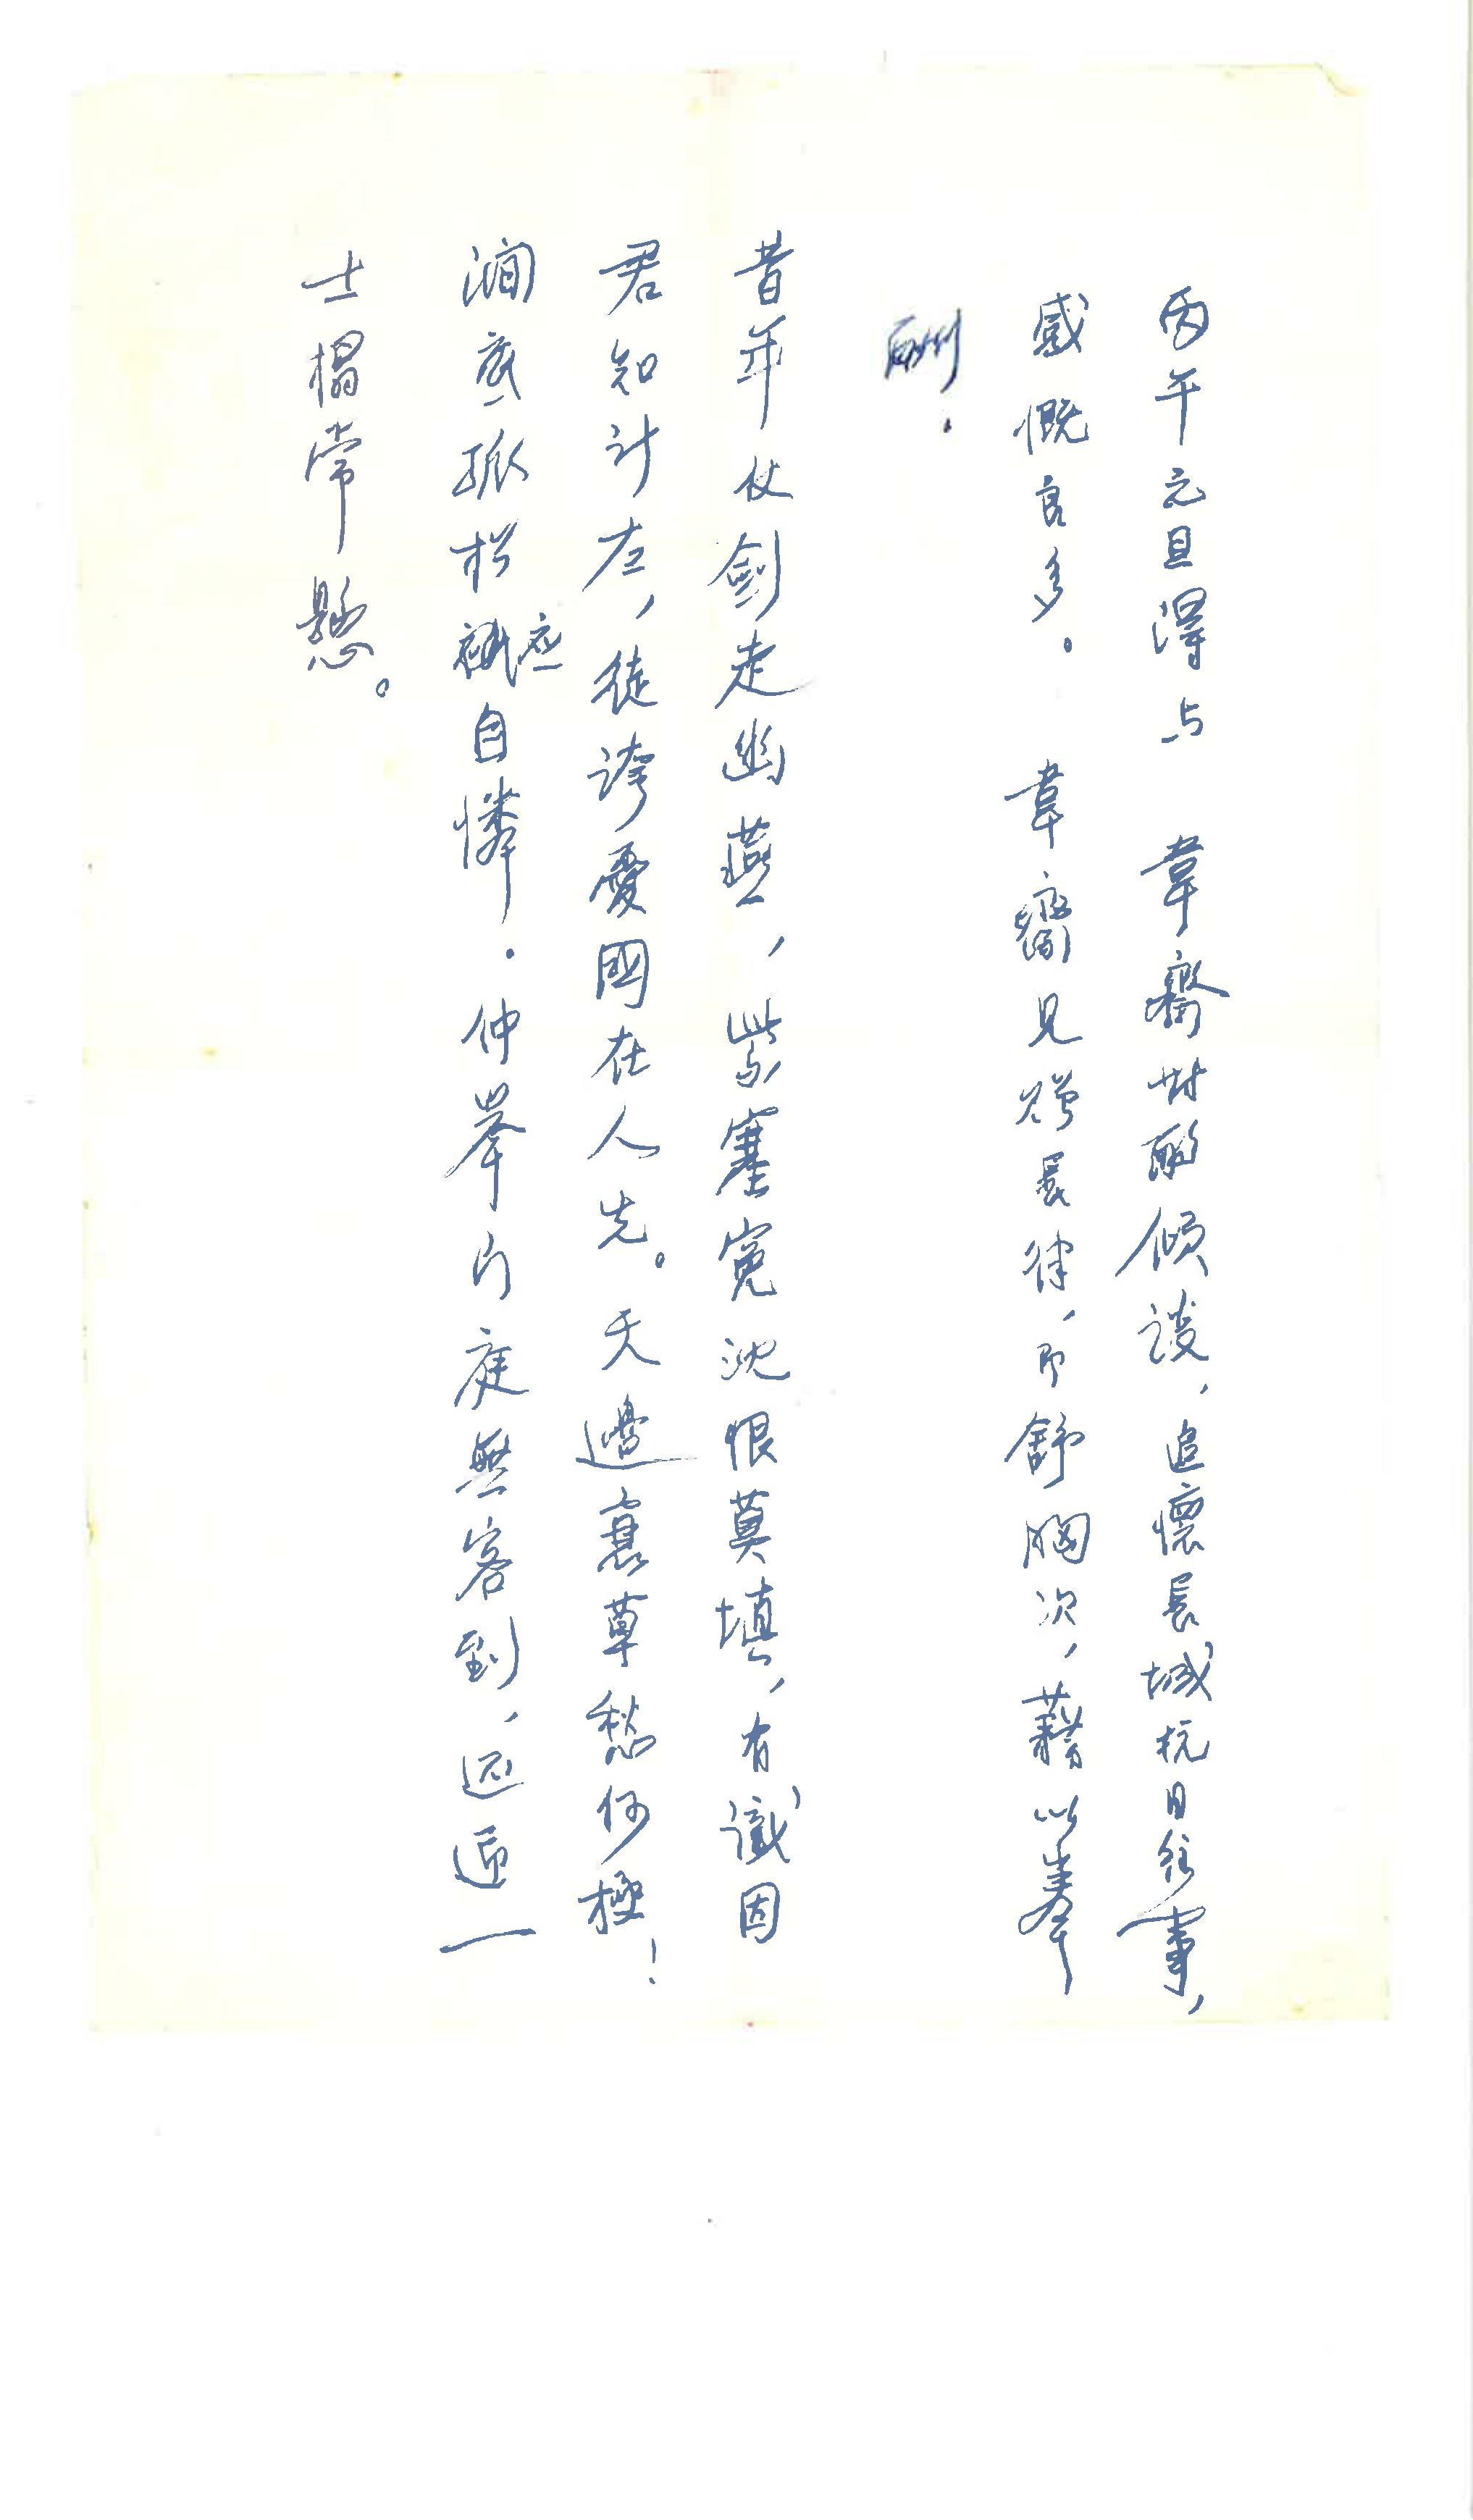 丙午元旦得与 韋齋對酌傾談，追懷長城抗日往事，
感慨良多。 韋齋見贈長律，即舒胸次，藉以奉
酬．
昔年仗劍走幽燕，紫塞寃沈恨莫填，有識因
君知計左，徒誇愛国在人先。天邊衰草愁何極！
澗底孤松應自憐．仲舉门庭無客到，迢遥一
士榻常懸。